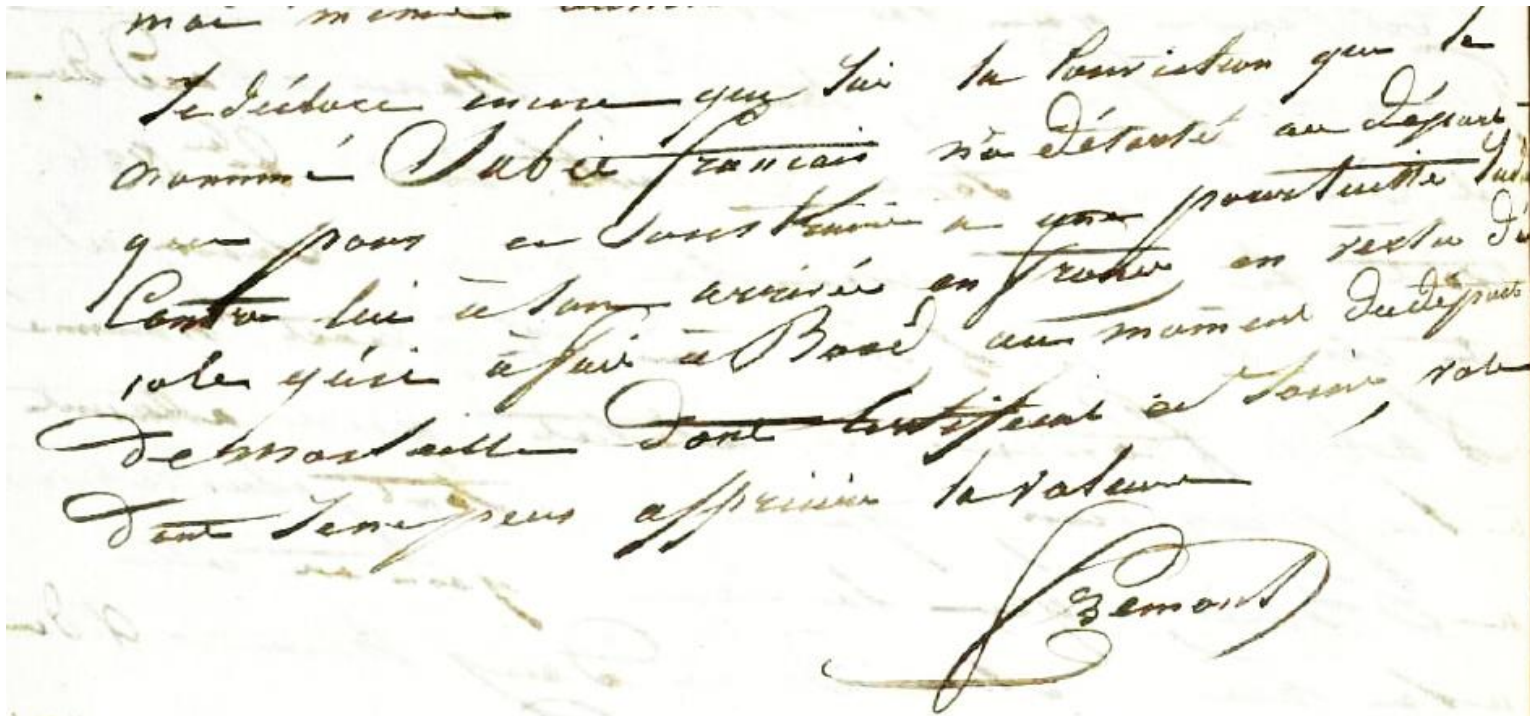 moi même
Je déclare encore que j'ai la Conviction que le
nommé Subée français n'a déserté au départ
que pour ce soustraire a une poursuitte
Contre lui à son arrivée en france en vertu
vole qui a fait à Bord au moment du départ
de marseille dont certificat et joint, vole
dont Je ne peus apprécier la valeure